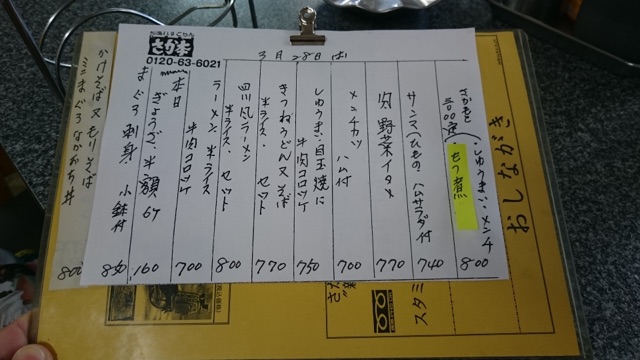 おしながき
スタミ
3月28日
0120-63-6021
しゅうまい、メンチ
もつ煮
800
サンマ(ひもの)ハムサラダ付
740
肉野菜イタメ
770
メンチカツ ハム付
700
しゅうまい、目玉焼に
半肉コロッケ
750
きつねうどん又そば
半ライス・セット
770
四川風ラーメン
半ライス・セット
800
ラーメン 半ライス
半肉コロッケ
700
本日
ぎょうざ、半額
160
まぐろ刺身 小鉢付
850
かけそば又もりそば
ミニまぐろなかおち丼
800